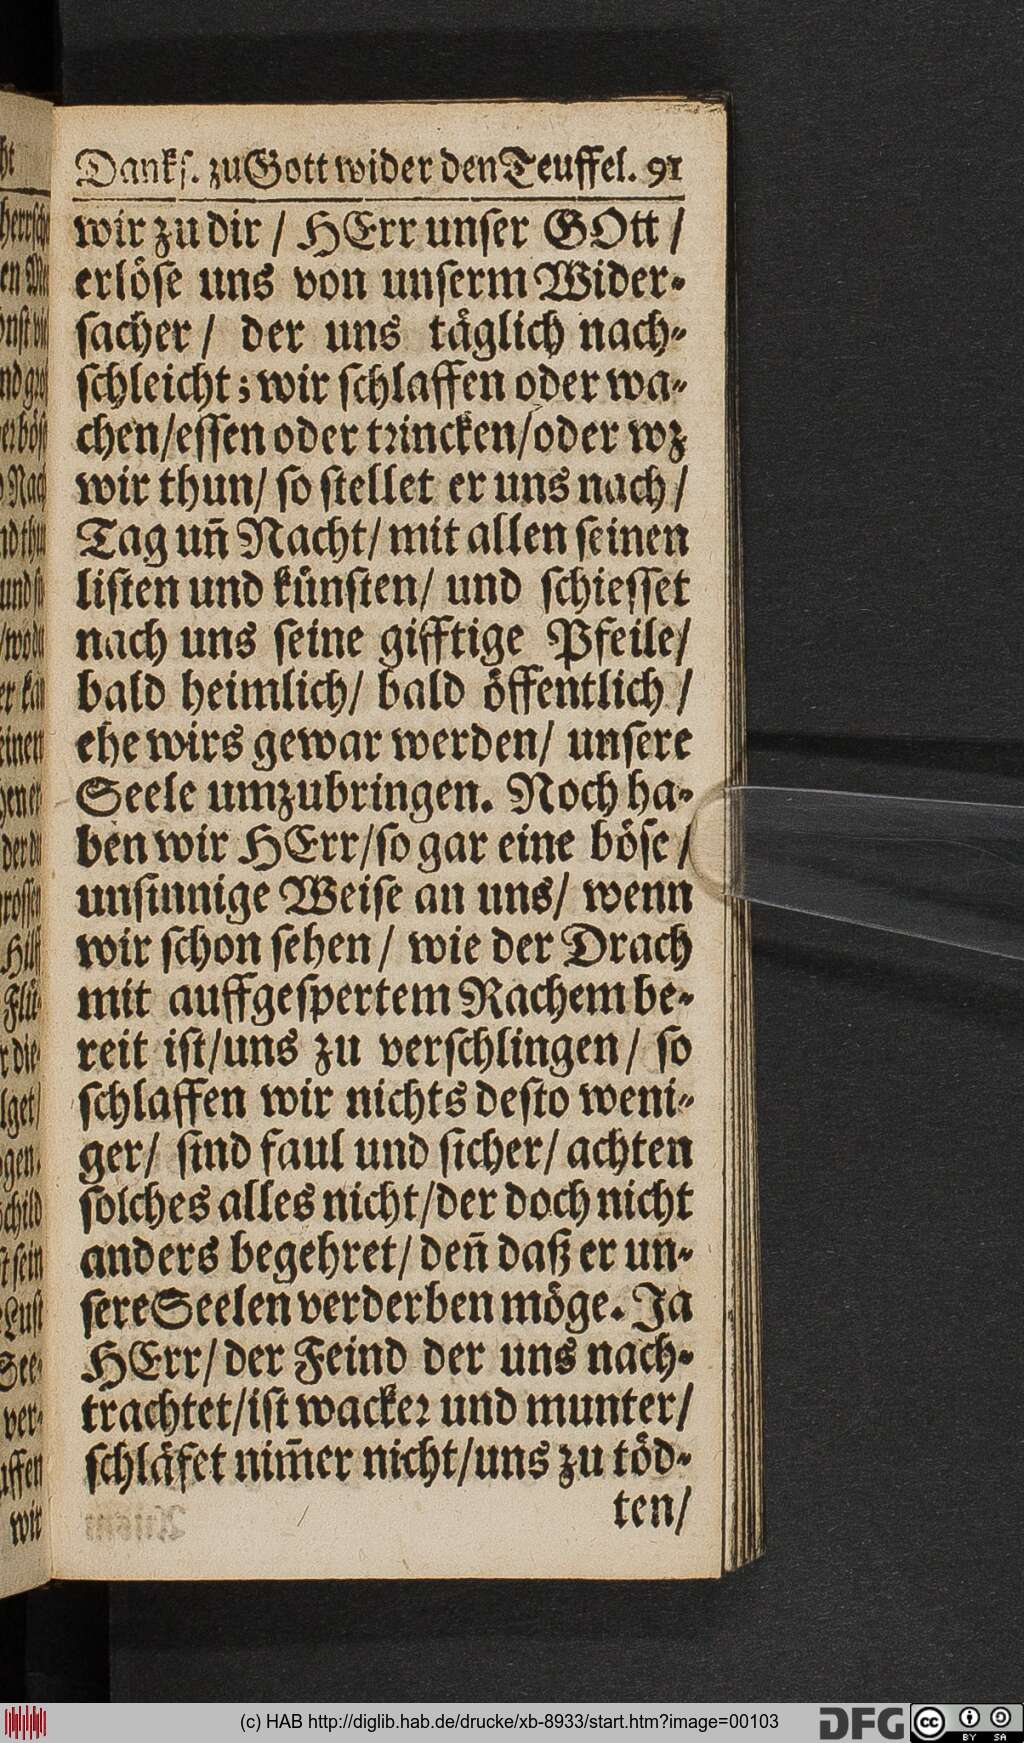 Dankſ. zu Gott wider den Teuffel. 91
wir zu dir / HErr unſer GOtt /
erlöſe uns von unſerm Wider-
ſacher / der uns täglich nach-
ſchleicht; wir ſchlaffen oder wa-
chen/eſſen oder trincken/oder wz
wir thun/ ſo ſtellet er uns nach /
Tag uñ Nacht/ mit allen ſeinen
liſten und künſten/ und ſchieſſet
nach uns ſeine gifftige Pfeile/
bald heimlich/ bald öffentlich /
ehe wirs gewar werden/ unſere
Seele umzubringen. Noch ha-
ben wir HErr/ſo gar eine böſe /
unſinnige Weiſe an uns/ wenn
wir ſchon ſehen / wie der Drach
mit auffgeſpertem Rachem be-
reit iſt/uns zu verſchlingen/ ſo
ſchlaffen wir nichts deſto weni-
ger/ ſind faul und ſicher/ achten
ſolches alles nicht/der doch nicht
anders begehret/ deñ daß er un-
ſere Seelen verderben möge. Ja
HErr/ der Feind der uns nach-
trachtet/iſt wacker und munter/
ſchläfet nim̃er nicht/uns zu töd-
ten/
wir
(c) HAB http://diglib.hab.de/drucke/xb-8933/start.htm?image=00103
DFG
cc BY SA